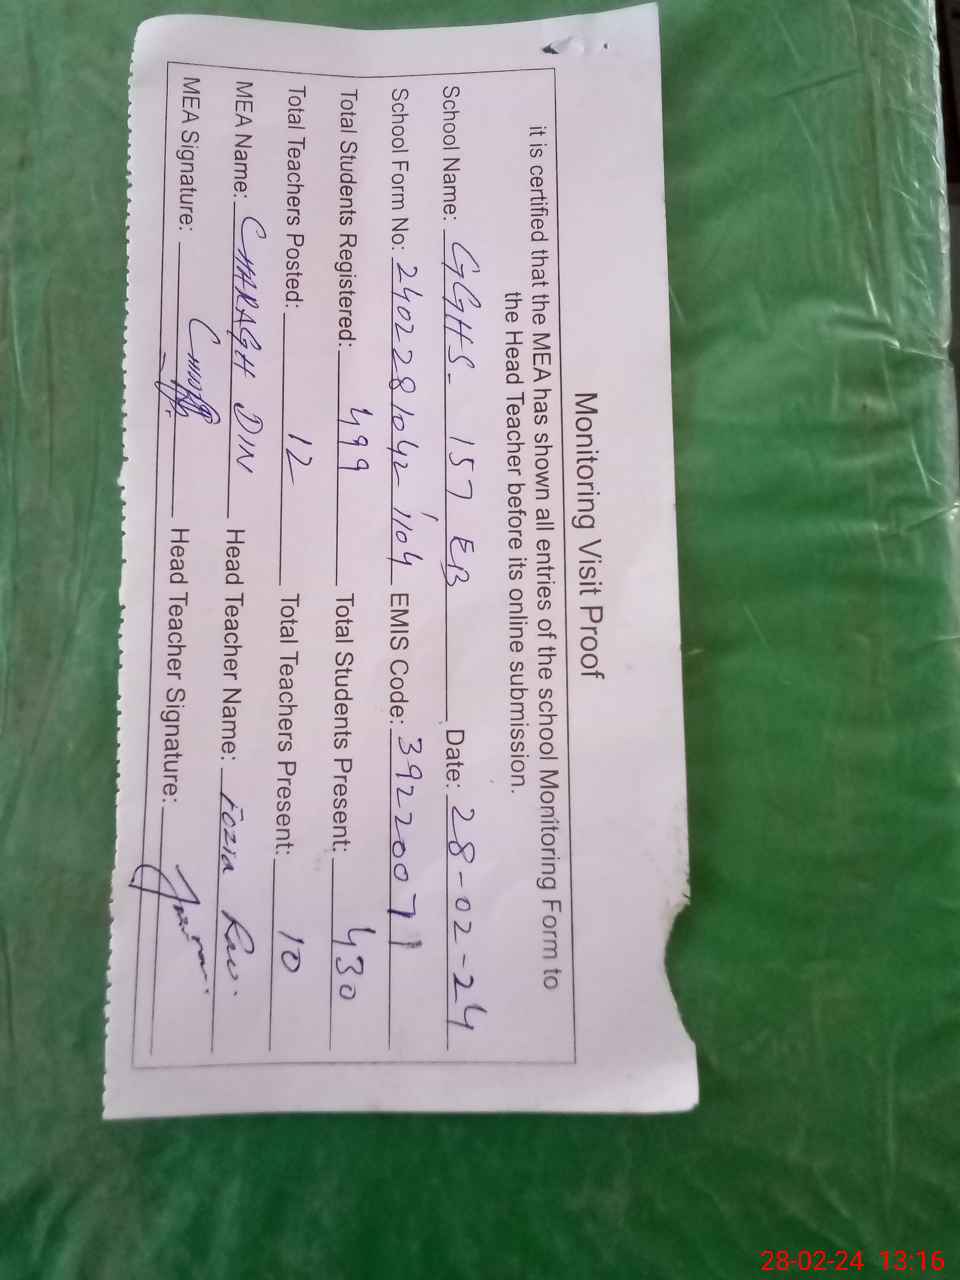 Monitoring Visit Proof
it is certified that the MEA has shown all entries of the school Monitoring Form to
the Head Teacher before its online submission.
School Name: GGHS. 157 EB Date: 28-02-24
School Form No: 2402281042 1104 EMIS Code: 39220071
Total Students Registered: 499 Total Students Present: 430
Total Teachers Posted: 12 Total Teachers Present: 10
MEA Name: CHARAGH DIN Head Teacher Name: Fozia
MEA Signature: Head Teacher Signature:
28-02-24 13:16